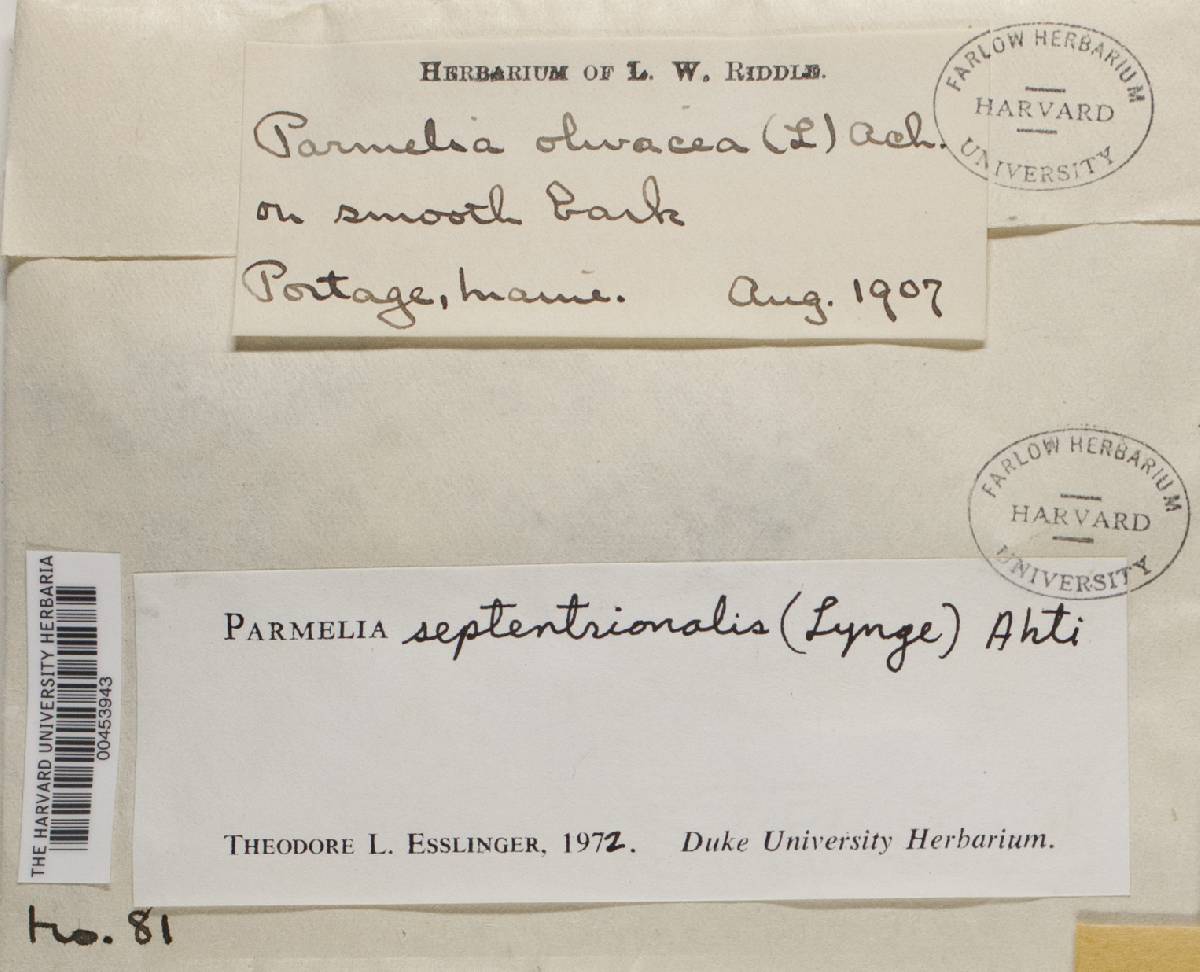 HERBARIUM OF L. W. RIDDLE.
Parmelia olivacea (L) Ach.
on smooth bark
Portage, Maine. Aug. 1907
FARLOW HERBARIUM
HARVARD
UNIVERSITY
FARLOW HERBARIUM
HARVARD
UNIVERSITY
PARMELIA septentrionalis (Lynge) Ahti
THEODORE L. ESSLINGER, 1972. Duke University Herbarium.
THE HARVARD UNIVERSITY HERBARIA
00453943
No. 81